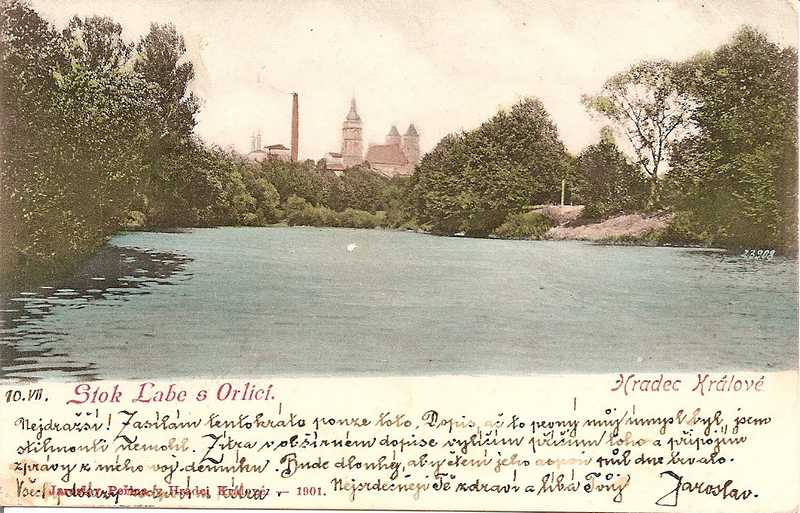 23908
10.VII. Stok Labe s Orlicí. Hradec Králové
Nejdražší! Zasílám tentokráte pouze toto. Dopis, ač to pevný můj úmysl byl, jsem
stihnouti nemohl. Zítra v obšírném dopise vylíčím příčinu toho a připojím
zprávy z mého voj. denníku. Bude dlouhý, aby čtení jeho aspoň půl dne trvalo.
Hradci Králové — 1901. Nejsrdečněji Tě zdraví a líbá Tvůj Jaroslav.